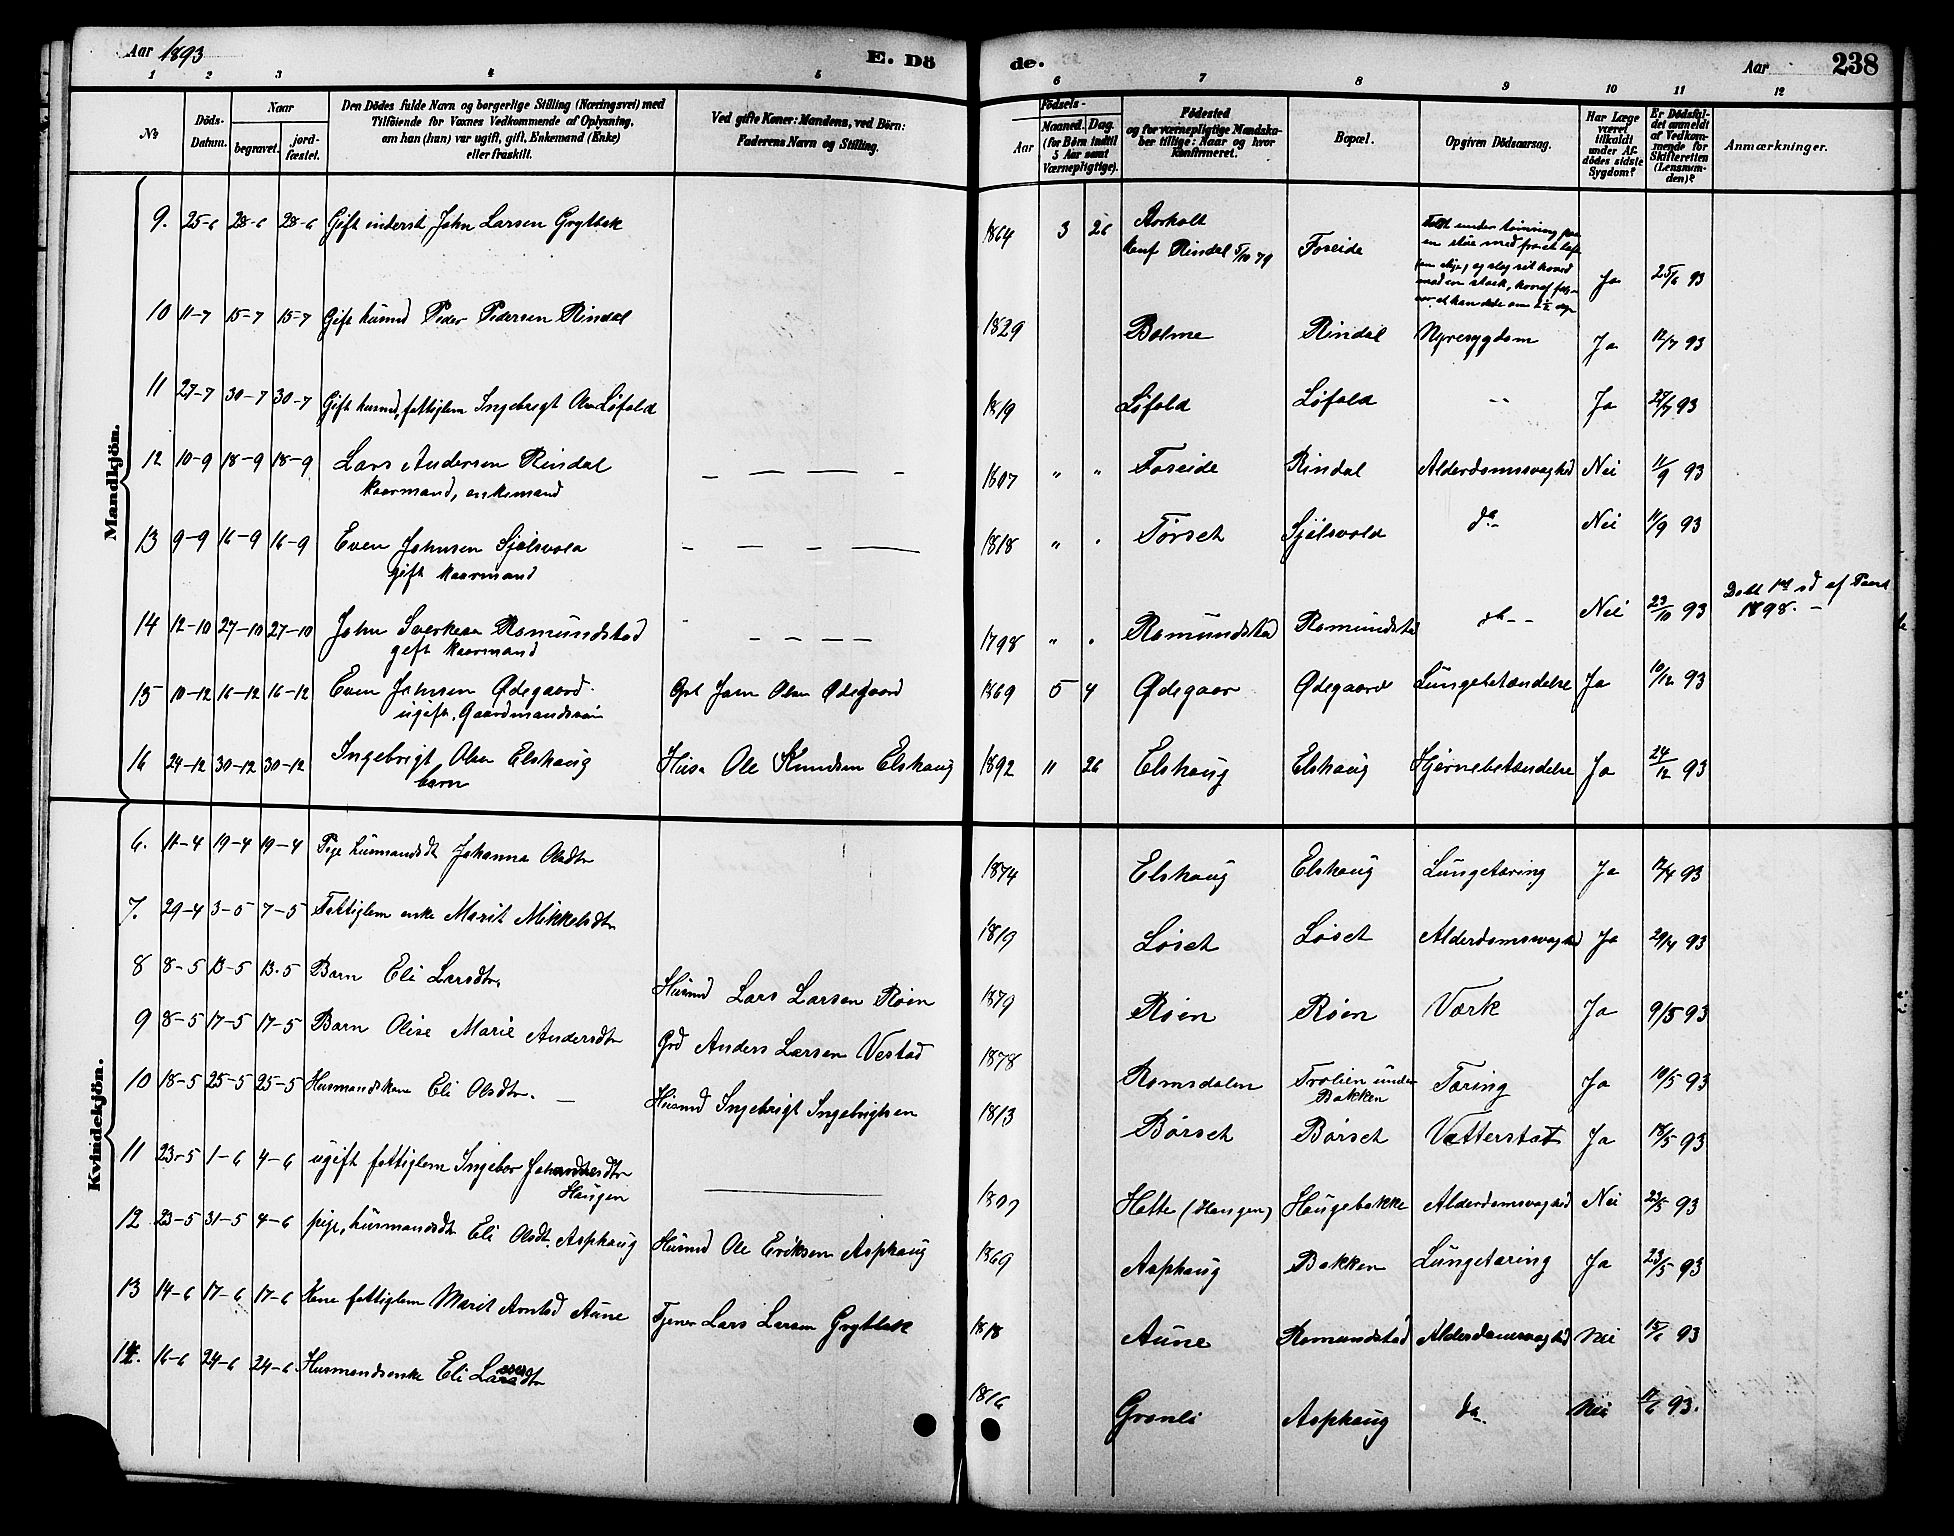 Aar 1893
E. Dö
de.
Aar
238
1 2 3 4 5 6 7 8 9 10 11 12
No
Döds-Datum.
Naar
begravet.
jord-fæstet.
Den Dödes fulde Navn og borgerlige Stilling (Næringsvei) med
Tilföiende for Voxnes Vedkommende af Oplysning,
om han (hun) var ugift, gift, Enkemand (Enke)
eller fraskilt.
Ved gifte Koner: Mandens, ved Börn:
Faderens Navn og Stilling.
Födsels-
Aar
Maaned. Dag.
(for Börn indtil
5 Aar samt
Værnepligtige).
Födested
og for værnepligtige Mandska-
ber tillige: Naar og hvor
Konfirmeret.
Bopæl.
Opgiven Dödsaarsag.
Har Læge
været
tilkaldt
under Af-
dödes sidste
Sygdom?
Er Dödsfal-
det anmeldt
af Vedkom-
mende for
Skifteretten
(Lensman-
den)?
Anmærkninger.
Mandkjön.
9. 25-6 28-6 28-6 Gift inderst John Larsen Grytbak 1864 3 26 Aorholt Konf Rindal 5/10 79 Foseide Ja 25/6 93
10 11-7 15-7 15-7 Gift husmd Peder Pedersen Rindal 1829 Bolme Rindal Nyresygdom Ja 12/7 93
11 27-7 30-7 30-7 Gift husmd, fattiglem Ingebrigt Olsen Löfald 1819 Löfald Löfald -"- Ja 27/7 93
12 10-9 18-9 18-9 Lars Andersen Rindal
kaarmand, enkemand 1807 " " Foseide Rindal Alderdomssvaghed Nei 11/9 93
13 9-9 16-9 16-9 Even Johnsen Sjölsvold
gift kaarmand 1818 " " Törset Sjölsvold do Nei 11/9 93
14 12-10 27-10 27-10 John Sverkesen Romundstad
gift kaarmand 1798 " " Romundstad Romundstad Nei 23/10 93
1898.
15 10-12 16-12 16-12 Even Johnsen Ödegaard
ugift, Gaardmandssön Gbr John Olsen Ödegaard 1869 5 4 Ödegaar Ödegaard Lungebetændelse Ja 10/12 93
16 24-12 30-12 30-12 Ingebrigt Olsen Elshaug
barn Husm Ole Knudsen Elshaug 1892 11 26 Elshaug Elshaug Hjernebetændelse Ja 24/12 93
Kvindekjön.
6. 11-4 19-4 19-4 Pige husmandsdt Johanna Olsdtr 1874 Elshaug Elshaug Lungetæring Ja 12/4 93
7. 29-4 3-5 7-5 Fattiglem enke Marit Mikkelsdtr 1819 Löset Löset Alderdomssvaghed Ja 29/4 93
8 8-5 13-5 13-5 Barn Eli Larsdtr. Husmd Lars Larsen Röen 1879 Röen Röen Værk Ja 9/5 93
9 8-5 17-5 17-5 Barn Olise Marie Andersdtr Grd Anders Larsen Vestad 1878 Romsdalen Trolien under
Bakken Tæring Ja 10/5 93
10 18-5 25-5 25-5 Husmandskone Eli Olsdtr. Husmd Ingebrigt Ingebrigtsen 1813 Börset Börset Vattersot Ja 18/5 93
11 23-5 1-6 4-6 ugift fattiglem Ingebor
Haugen 1807 Hatte (Haugen) Haugebakke Alderdomssvaghed Nei 23/5 93
12 23-5 31-5 4-6 pige, husmandsdt Eli Olsdt. Asphaug Husmd Ole Eriksen Asphaug 1869 Asphaug Bakken Lungetæring Ja 23/5 93
13 14-6 17-6 17-6 Kone fattiglem Marit Arntsd Aune Tjener Lars Larsen Grytbak 1818 Aune Romundstad Alderdomssvaghed Nei 15/6 93
14. 16-6 24-6 24-6 Husmandsenke Eli 1816 Gronli Asphaug do Nei 17/6 93.